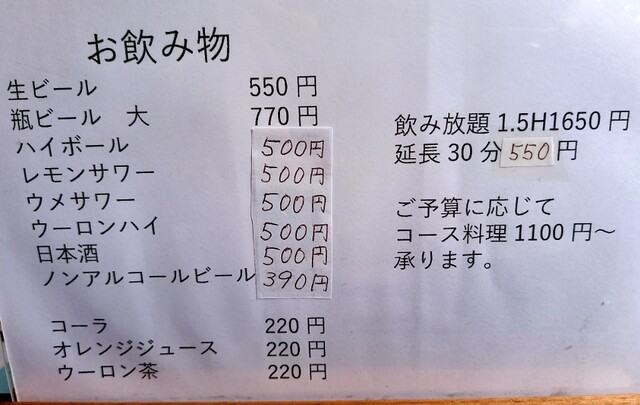 お飲み物
生ビール 550円
瓶ビール 大 770円
ハイボール 500円
レモンサワー 500円
ウメサワー 500円
ウーロンハイ 500円
日本酒 500円
ノンアルコールビール 390円
コーラ 220円
オレンジジュース 220円
ウーロン茶 220円
飲み放題 1.5H1650円
延長30分550円
ご予算に応じて
コース料理 1100円～
承ります。